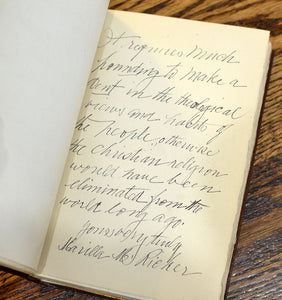 It requires much
pounding to make a
dent in the theological
views and habits of
the people, otherwise
the Christian religion
would have been
eliminated from the
world long ago.
Yours
Marilla M. Ricker